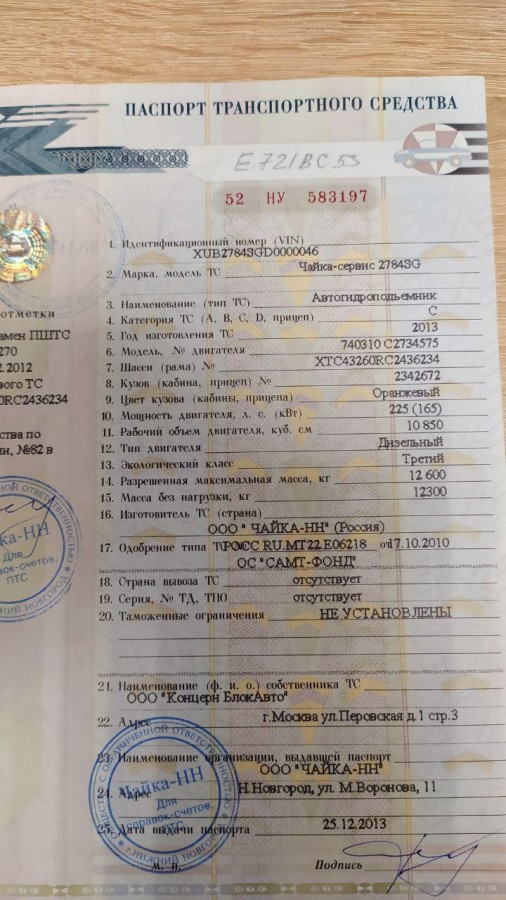 ПАСПОРТ ТРАНСПОРТНОГО СРЕДСТВА
Е 721 ВС 53
52 НУ 583197
1. Идентификационный номер (VIN)
XUB2784SGD0000046
2. Марка, модель ТС Чайка-сервис 2784SG
3. Наименование (тип ТС) Автогидроподъемник
4. Категория ТС (A, B, C, D, прицеп) C
5. Год изготовления ТС 2013
6. Модель, № двигателя 740310 C2734575
7. Шасси (рама) № XTC43260RC2436234
8. Кузов (кабина, прицеп) № 2342672
9. Цвет кузова (кабины, прицепа) Оранжевый
10. Мощность двигателя, л. с. (кВт) 225 (165)
11. Рабочий объем двигателя, куб. см 10 850
12. Тип двигателя Дизельный
13. Экологический класс Третий
14. Разрешенная максимальная масса, кг 12 600
15. Масса без нагрузки, кг 12300
16. Изготовитель ТС (страна)
ООО " ЧАЙКА-НН" (Россия)
17. Одобрение типа ТС РОСС RU.МТ22.Е06218 от 17.10.2010
ОС "САМТ-ФОНД"
18. Страна вывоза ТС отсутствует
19. Серия, № ТД, ТПО отсутствует
20. Таможенные ограничения НЕ УСТАНОВЛЕНЫ
21. Наименование (ф. и. о.) собственника ТС
ООО "Концерн БлокАвто"
22. Адрес г.Москва ул.Перовская д.1 стр.3
23. Наименование организации, выдавшей паспорт
ООО "ЧАЙКА-НН"
24. Адрес Н.Новгород, ул. М.Воронова, 11
25. Дата выдачи паспорта 25.12.2013
М. П. Подпись
отметки
амен ПШТС
270
2.2012
вого ТС
0RC2436234
ства по
ии, №82 в
ка-НН
Для
вок-счетов,
ПТС
НИЖНИЙ НОВГОРОД
ОБЩЕСТВО С ОГРАНИЧЕННОЙ ОТВЕТСТВЕННОСТЬЮ
Чайка-НН
Для
справок-счетов,
ПТС
г. НИЖНИЙ НОВГОРОД